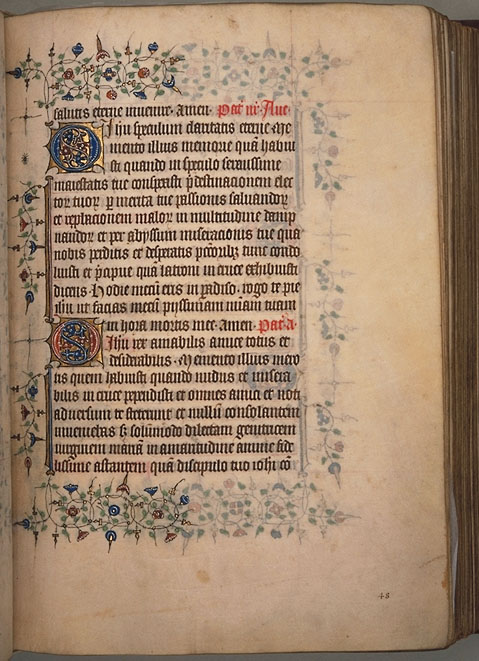 salutis eterne inuenire. amen. Pat nr. Aue.
O Ihu speculum claritatis eterne Me
mento illius memorie quā habui
sti quando in speculo serenissime
maiestatis tue conspexisti p̄destinacionem elec
toꝝ tuoꝝ ꝑ merita tue passionis saluandoꝝ
et reprobacionem maloꝝ in multitudine damp
nandoꝝ et per abyssum miseracionis tue qua
nobis perditis et desperatis pctoribꝫ tunc condo
luisti et p̄cipue quā latroni in cruce exhibuisti
dicens. Hodie mecū eris in padiso. rogo te pie
ihu ut facias mecū pijssimam miam tuam
in hora mortis mee. Amen. Pat. a.
O Ihu rex amabilis amice totus et
desiderabilis. Memento illius mero
ris quem habuisti quando nudus et misera
bilis in cruce pependisti et omnes amici et noti
aduersum te steterunt et nullū consolantem
inueniebas sꝫ solūmodo dilectam genitricem
uirginem mariā in amaritudine anime fide
lissime astantem quā discipulo tuo iohi cō
48